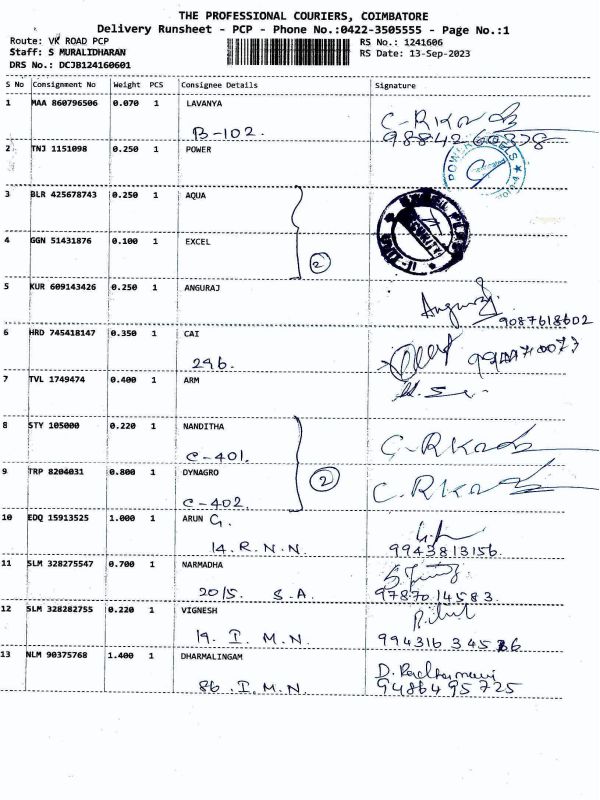 THE PROFESSIONAL COURIERS, COIMBATORE
Delivery Runsheet - PCP - Phone No.:0422-3505555 - Page No.:1
Route: VK ROAD PCP RS No.: 1241606
Staff: S MURALIDHARAN RS Date: 13-Sep-2023
DRS No.: DCJB124160601
S No Consignment No Weight PCS Consignee Details Signature
1 MAA 860796506 0.070 1 LAVANYA
B-102. 9884260378
2 TNJ 1151098 0.250 1 POWER
3 BLR 425678743 0.250 1 AQUA
4 GGN 51431876 0.100 1 EXCEL
2
5 KUR 609143426 0.250 1 ANGURAJ
9087618602
6 HRD 745418147 0.350 1 CAI
296.
7 TVL 1749474 0.400 1 ARM
8 STY 105000 0.220 1 NANDITHA
C-401.
9 TRP 8204031 0.800 1 DYNAGRO
2
C-402.
10 EDQ 15913525 1.000 1 ARUN G.
14. R. N. N. 9943813156.
11 SLM 328275547 0.700 1 NARMADHA
20/5. S. A. 9787014583.
12 SLM 328282755 0.220 1 VIGNESH
19. I. M. N.
13 NLM 90375768 1.400 1 DHARMALINGAM
86. I. M. N. 9486495725